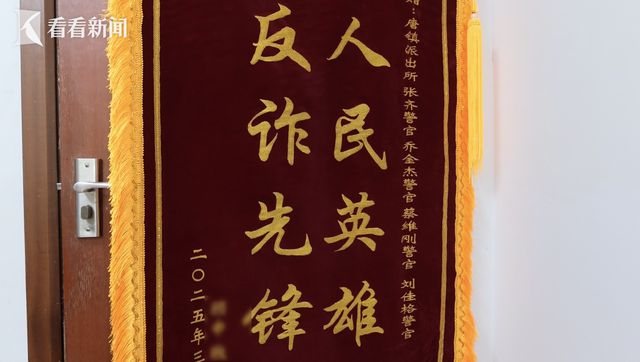 看看新闻
赠：唐镇派出所 张齐警官 乔金杰警官 蔡维刚警官 刘佳格警官
人民英雄
反诈先锋
二〇二五年三